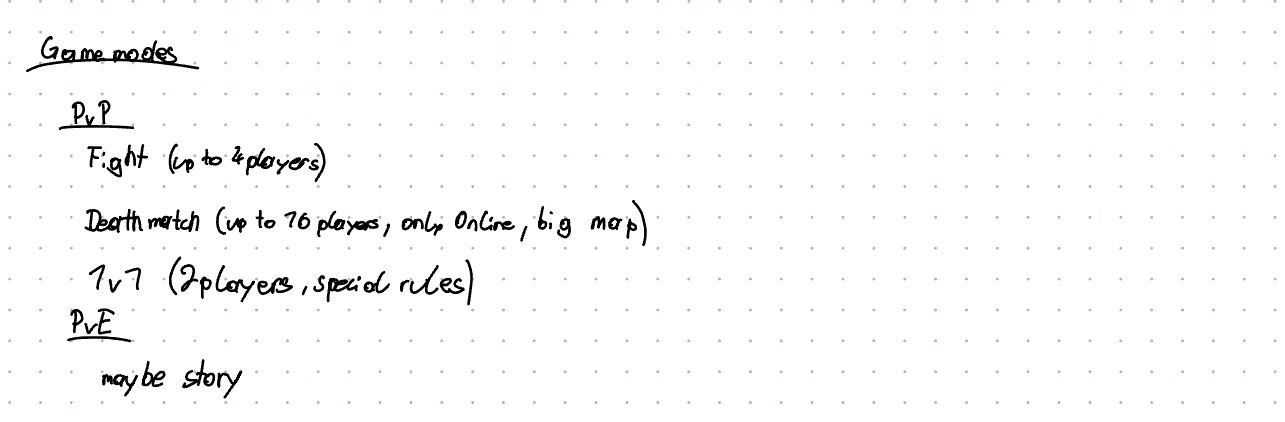 Game modes
PvP
Fight (up to 4 players)
Deathmatch (up to 16 players, only Online, big map)
1v1 (2players, special rules)
PvE
maybe story